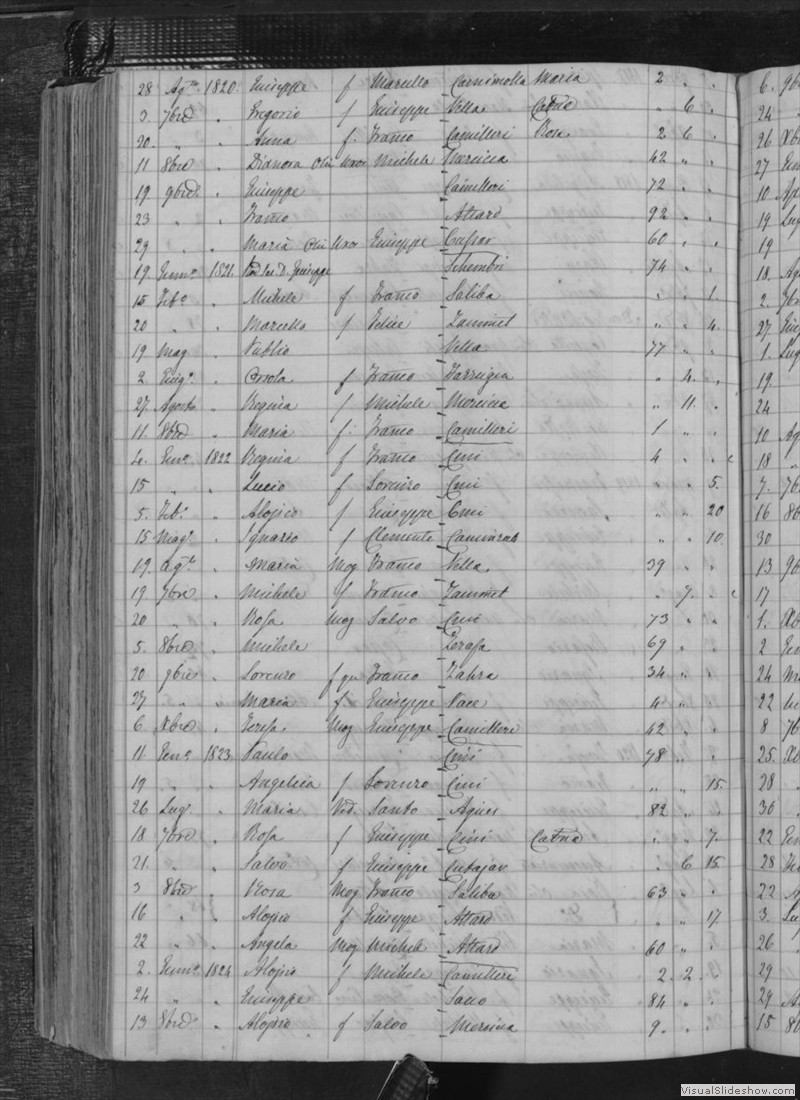 28 Agto 1820 Giuseppe f Marcello Carnimolla Maria 2 " "
3 7bre " Gregorio f Giuseppe Vella Catna " 6 "
20 " " Anna f. Franco Camilleri Rosa 2 6 "
11 8bre " Dianora Olim Uxor Michele 42 " "
19 9bre " Giuseppe Camilleri 72 " "
23 " " Franco Attard 92 " "
29 " " Maria Olim Uxor Giuseppe Cassar 60 " "
19 Genno 1821 D. Giuseppe Schembri 74 " "
15 Febo " Michele f Franco Saliba " " 1.
20 " " Marcello f Felice Zammit " " 4.
19 Mag " Publio Vella 77 " "
2 Giugo " Orsola f Franco Farrugia " 4. "
27 Agosto " Regina f Michele Mercieca " 11. "
11. 8bre " Maria f. Franco Camilleri 1 " "
4. Geno 1822 Regina f Franco Cini 4 " "
15 " " Lucio f Lorenzo Cini " " 5.
5. Febo " Alojsio f Giuseppe Cini " " 20
15 Mago " Ignazio f Clemente " " 10.
19. Agto " Maria Mog Franco Vella 39 " "
19 7bre " Michele f Franco Zammit " 7. "
20 " " Rosa Mog Salvo Cini 73 " "
5. 8bre " Michele Zerafa 69 " "
20 9bre " Lorenzo f qm Franco Zahra 34 " "
27 " " Maria f Giuseppe Pace 4 " "
6 Xbre " Teresa Mog Giuseppe Camilleri 42 " "
11 Geno 1823 Paulo Cini 78 " "
19 " " Angelica f Lorenzo Cini " " 15.
26 Lugo " Maria Ved. Santo Agius 82 " "
18 7bre " Rosa f Giuseppe Cini Catna " " 7.
21. " " Salvo f Giuseppe Cutajar " 6 15
3 8bre " Rosa Mog Franco Saliba 63 " "
16 " " Alojsio f Giuseppe Attard " " 17.
22 " " Angela Mog Michele Attard 60 " "
2. Genno 1824 Alojsio f Michele Camilleri 2. 2. "
24 " " Giuseppe 84 " "
13 8bre " Alojsio f Salvo Mercieca 9. " "
6. 9b
24
26 Xb
27
10 Ap
19 Lug
19
18. Ag
2. 7b
27
1. Lug
19.
24
10 Ag
18 "
7. 7b
16 8b
30
13 9b
17
1. Xb
2
24
22
8 7b
25. Xb
28
30
22
28
22
3. Lu
26
29
29
15 8b
VisualSlideshow.com